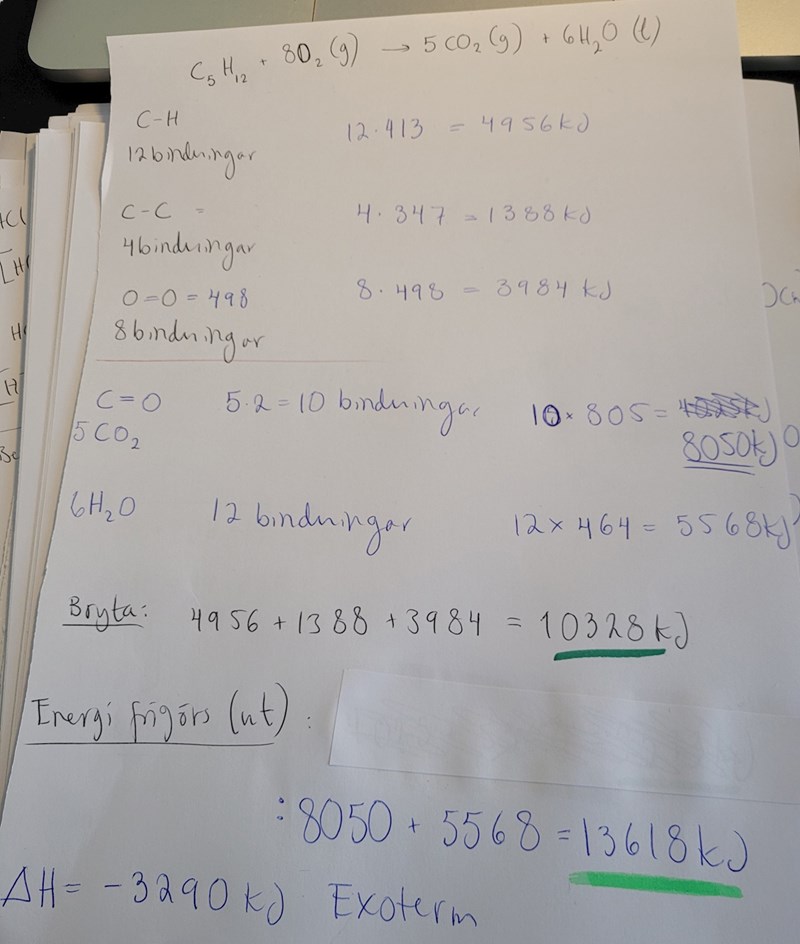 C₅H₁₂ + 8O₂ (g) → 5CO₂ (g) + 6H₂O (l)
C-H 12·413 = 4956kJ
12bindningar
C-C = 4·347 = 1388kJ
4bindningar
O=O = 498 8·498 = 3984 kJ
8bindningar
C=O 5·2=10 bindningar 10×805=
5CO₂ 8050kJ
6H₂O 12 bindningar 12×464 = 5568kJ
Bryta: 4956+1388+3984 = 10328kJ
Energi frigörs (ut) :
:8050+5568=13618kJ
ΔH= -3290kJ Exoterm